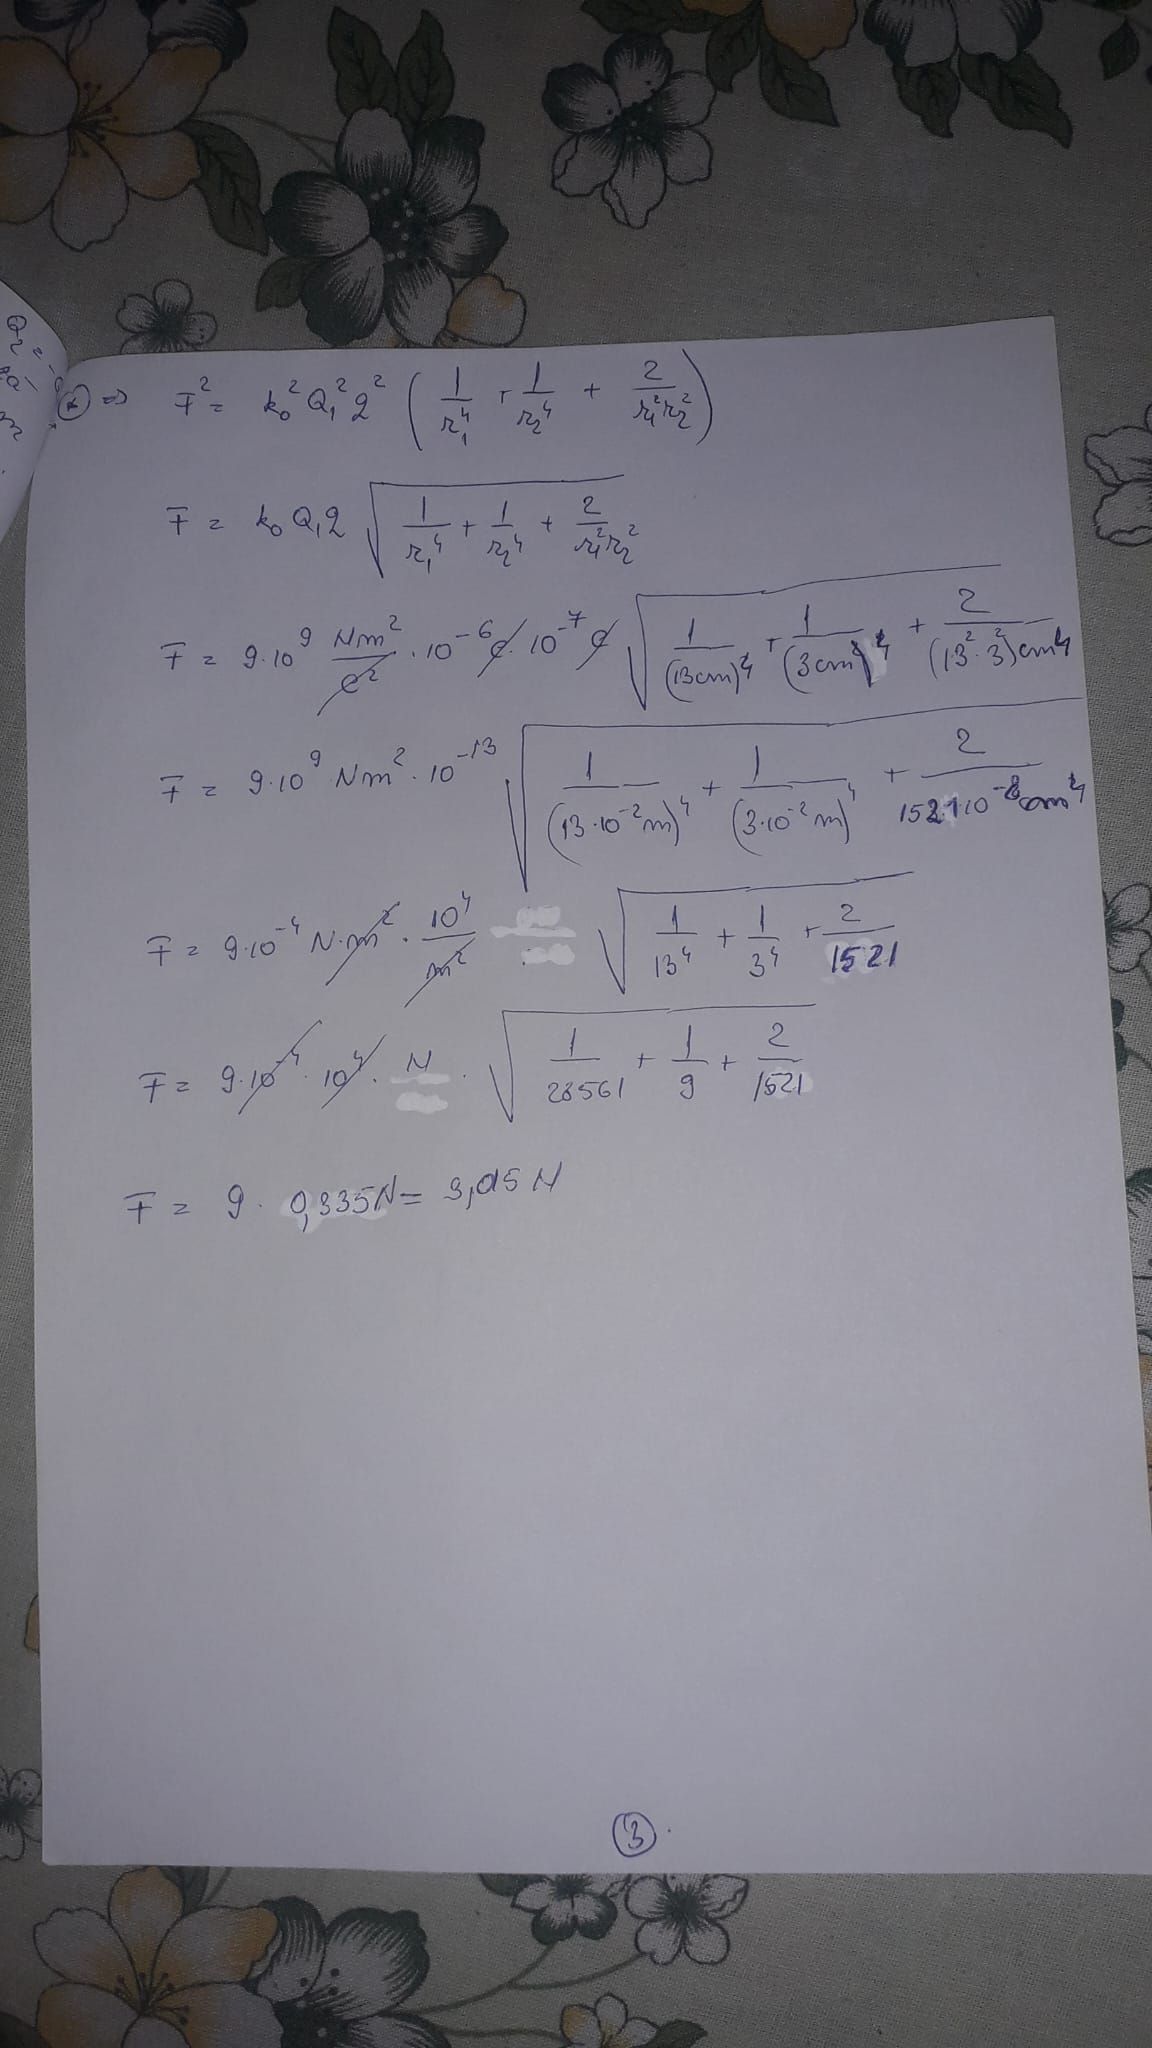 Q₂ = -
(*) => F² = k₀² Q₁² q² (1/r₁⁴ + 1/r₂⁴ + 2/r₁²r₂²)
F = k₀ Q₁ q √(1/r₁⁴ + 1/r₂⁴ + 2/r₁²r₂²)
F = 9·10⁹ Nm²/C² · 10⁻⁶ C · 10⁻⁷ C √(1/(13cm)⁴ + 1/(3cm)⁴ + 2/(13²·3²)cm⁴)
F = 9·10⁹ Nm² · 10⁻¹³ √(1/(13·10⁻²m)⁴ + 1/(3·10⁻²m)⁴ + 2/1521·10⁻⁸cm⁴)
F = 9·10⁻⁴ N·m² · 10⁴/m² · √(1/13⁴ + 1/3⁴ + 2/1521)
F = 9·10⁻⁴ · 10⁴ · N · √(1/28561 + 1/9 + 2/1521)
F = 9 · 0,335N = 3,015 N
3